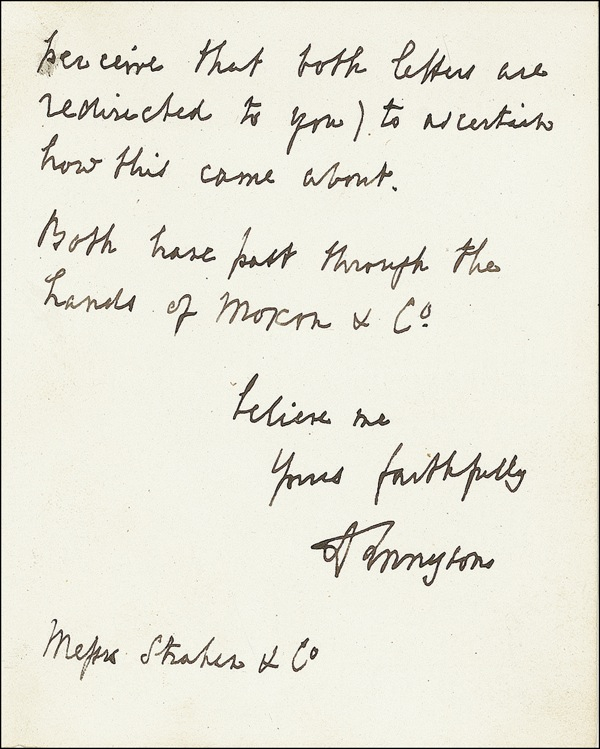 perceive that both letters are
redirected to you) to ascertain
how this came about.
Both have past through the
hands of Moxon & Co.
believe me
Yours faithfully
A Tennyson
Messrs Strahan & Co